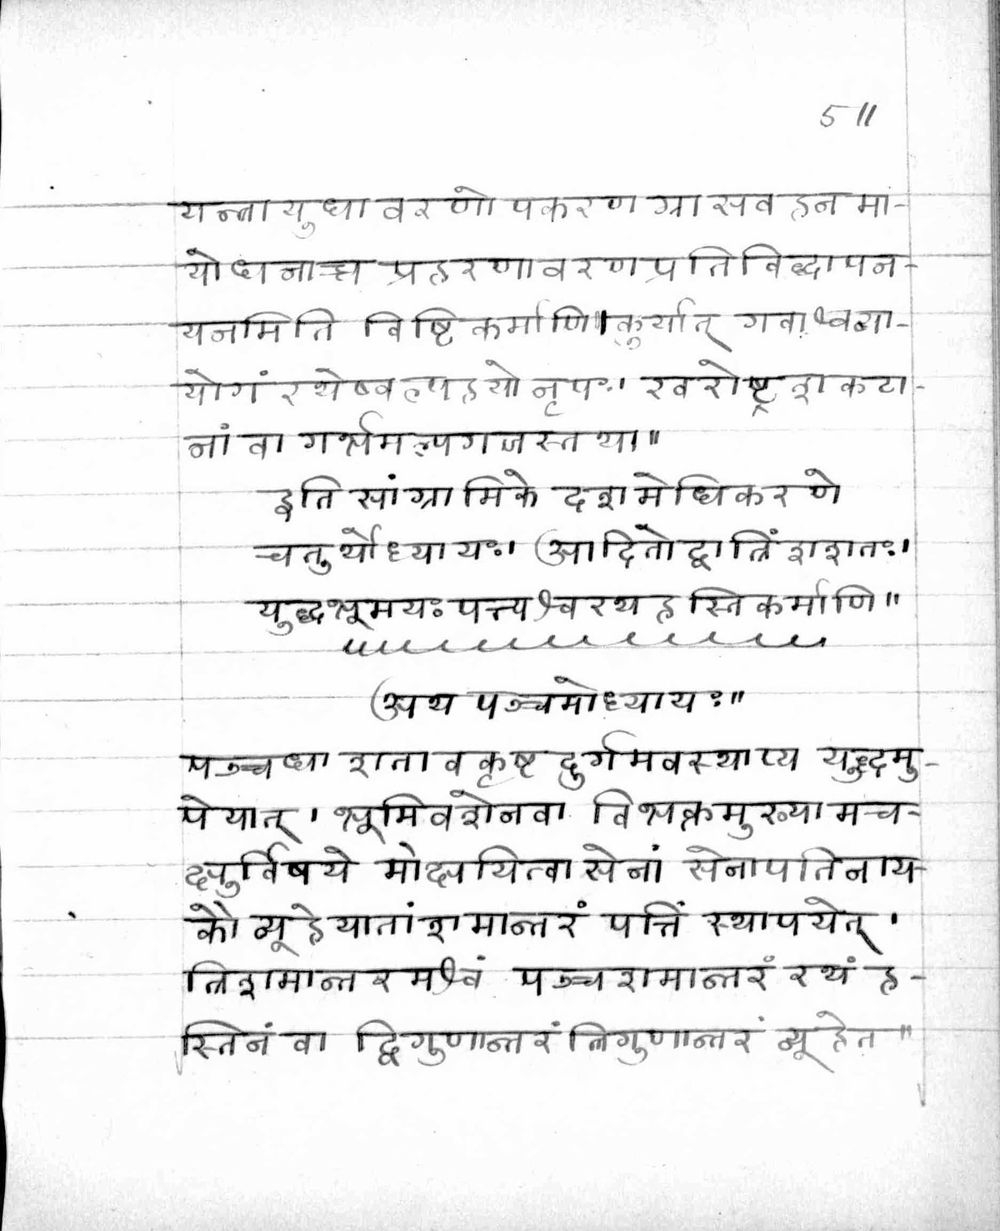 5॥
यन्त्रायुधावरणोपकरणग्रासवहनमा-
योधनाच्च प्रहरणावरणप्रतिविद्धापन-
यनमिति विष्टिकर्माणि॥कुर्यात् गवाश्वव्या-
योगंरथेष्वल्पहयोनृपः। खरोष्ट्रशकटा-
नांवा गर्भमल्पगजस्तथा॥
इति सांग्रामिके दशमेधिकरणे
चतुर्थोध्यायः। आदितोद्वात्रिंशशतः।
युद्धभूमयः पत्त्यश्वरथहस्तिकर्माणि॥
अथ पञ्चमोध्यायः॥
पञ्चधा शतावकृष्टदुर्गमवस्थाप्य युद्धमु-
पेयात्। भूमिवशेनवा विभक्तमुख्यामच-
क्षुर्विषये मोक्षयित्वासेनां सेनापतिनाय-
कौ व्यूहेयातांशमान्तरं पत्तिं स्थापयेत्।
त्रिशमान्तरमश्वं पञ्चशमान्तरंरथं ह-
स्तिनंवा द्विगुणान्तरंत्रिगुणान्तरं व्यूहेत॥